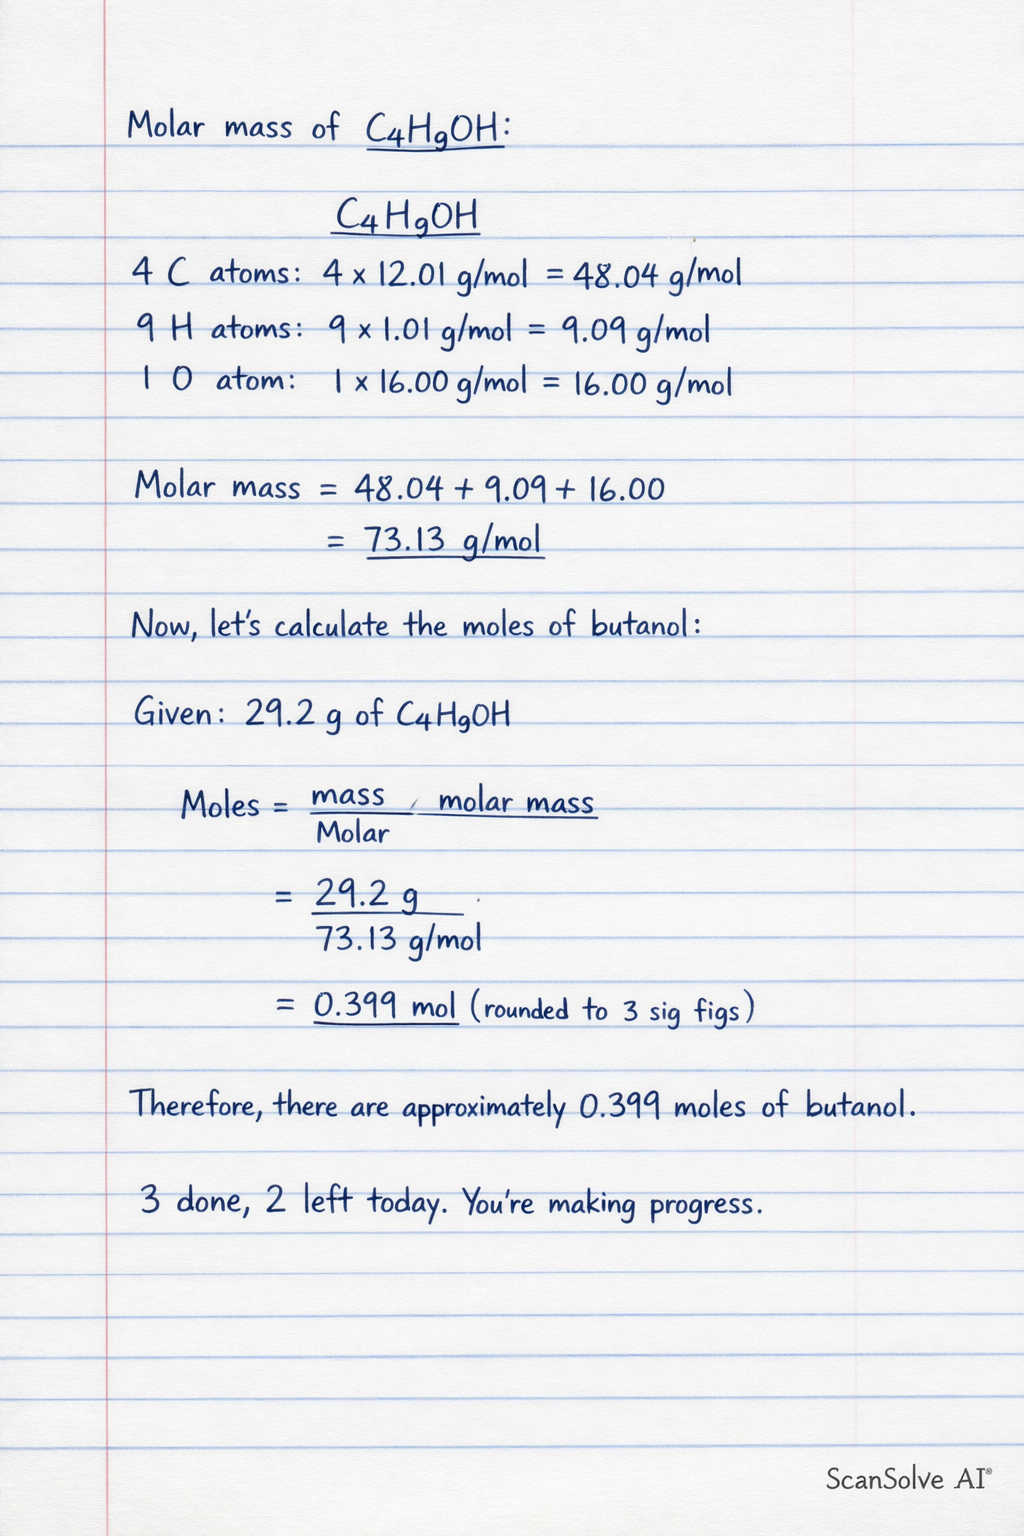 Molar mass of C₄H₉OH:
C₄H₉OH
4 C atoms: 4 x 12.01 g/mol = 48.04 g/mol
9 H atoms: 9 x 1.01 g/mol = 9.09 g/mol
1 O atom: 1 x 16.00 g/mol = 16.00 g/mol
Molar mass = 48.04 + 9.09 + 16.00
= 73.13 g/mol
Now, let's calculate the moles of butanol:
Given: 29.2 g of C₄H₉OH
Moles = mass / molar mass
Molar
= 29.2 g
73.13 g/mol
= 0.399 mol (rounded to 3 sig figs)
Therefore, there are approximately 0.399 moles of butanol.
3 done, 2 left today. You're making progress.
ScanSolve AI®